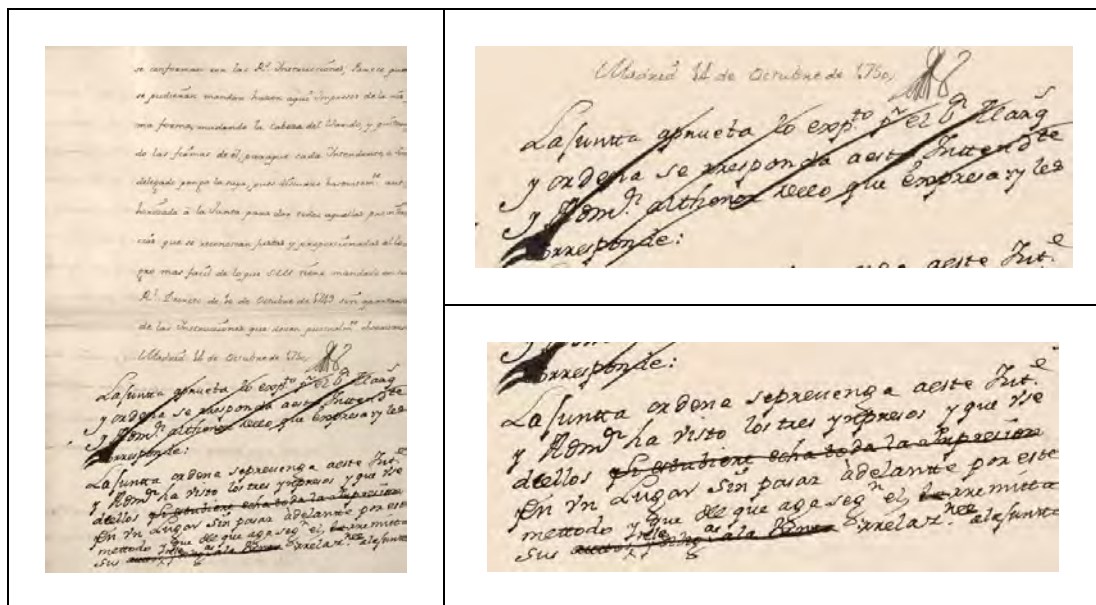 se conforman con las Rs. Instrucciones; Parece que
se pudieran mandar hazer aquí Impresos de la mis
ma forma, mudando la cabeza del Vando, y
de las firmas de él, para que cada Intendente, o
delegado ponga la suya, pues
à la Junta para dar todas aquellas
que se reconozcan justas y proporcionadas al lo
gro mas facil de lo que S.M. tiene mandado en su
Rl. Decreto de 10 de Octubre de 1749 sin apartarse
de las Instrucciones que deven
Madrid 14 de Octubre de 1750,
La Juntta aprueba lo exp.to pr el Sr
y ordena se rresponda a este Inttend.te
y Adm.or al thenor de lo que expresa y les
Corresponde:
La Juntta ordena se prevenga a este Int.e
y Adm.or ha visto los tres ynpresos y que vse
de ellos si estubiere echa toda la ynpresion
En vn Lugar Sin pasar àdelantte por este
mettodo y que de que aga seg.n el, rremitta
sus a la Juntta
Madrid 14 de Octubre de 1750,
La Juntta aprueba lo exp.to pr el Sr
y ordena se rresponda a este Inttend.te
y Adm.or al thenor de lo que expresa y les
Corresponde:
a este Int.e
Corresponde:
La Juntta ordena se prevenga a este Int.e
y Adm.or ha visto los tres ynpresos y que vse
de ellos si estubiere echa toda la ynpresion
En vn Lugar Sin pasar àdelantte por este
mettodo y que de que aga seg.n el, rremitta
sus a la Juntta